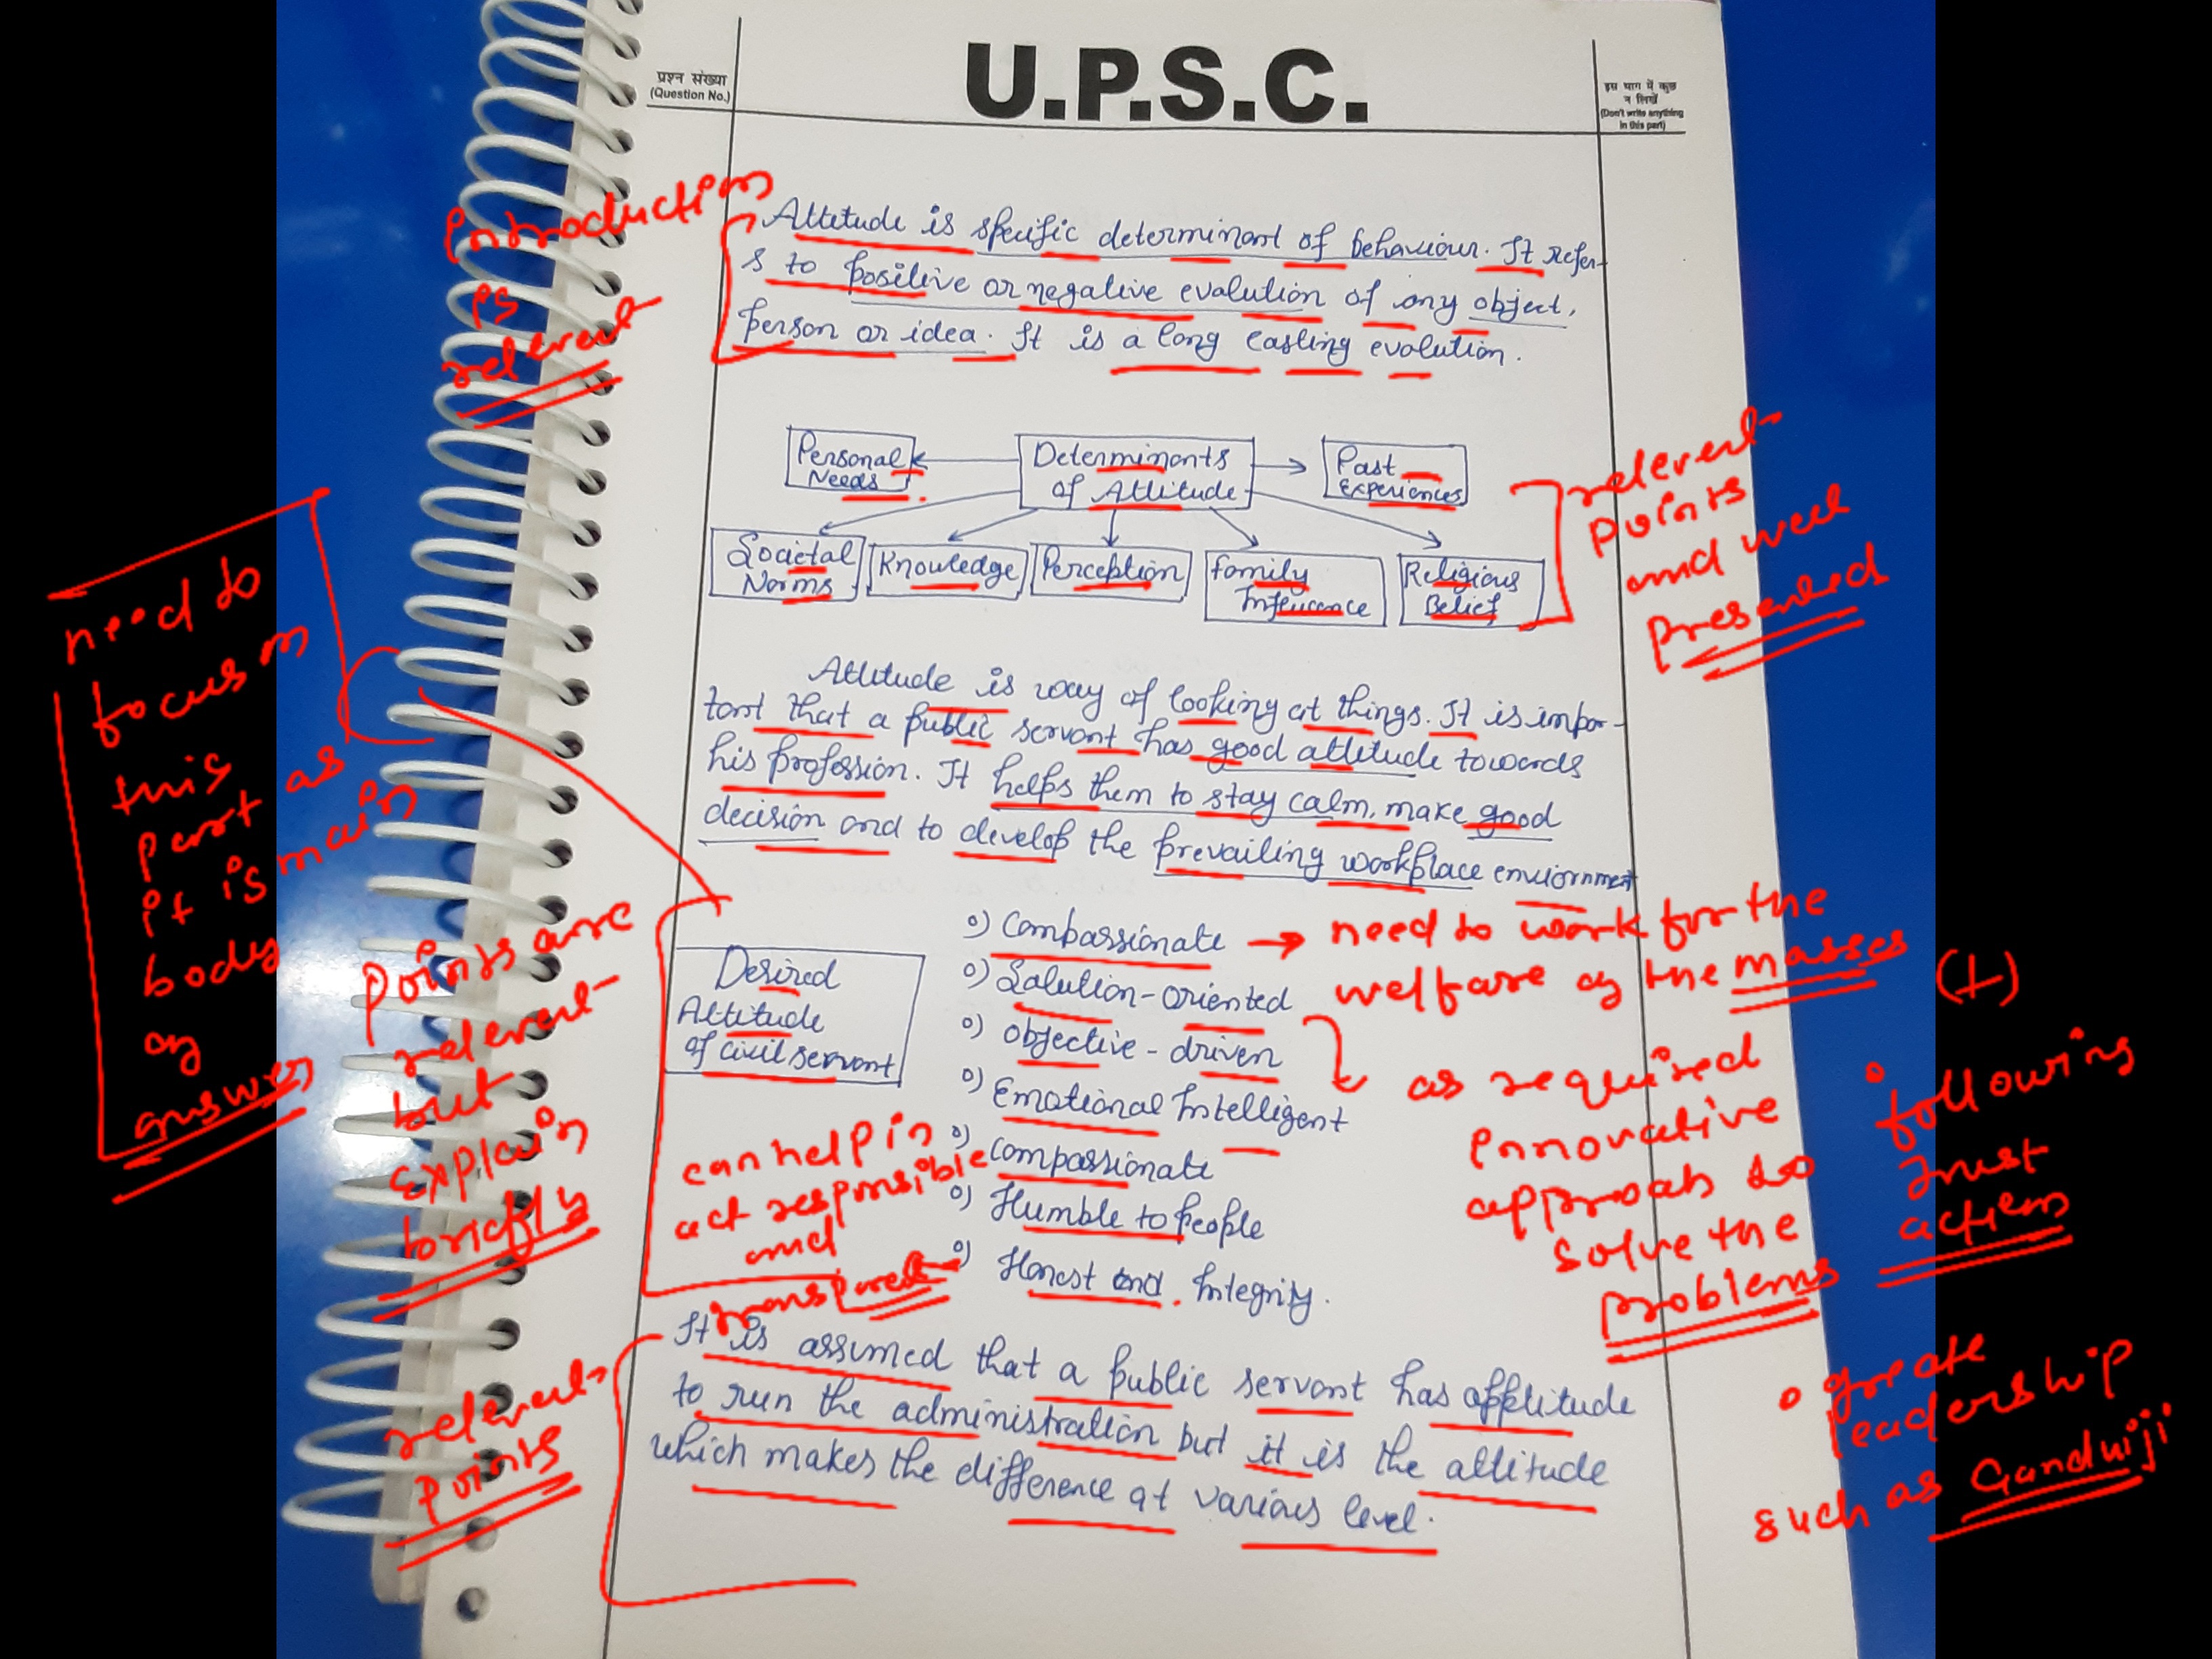 U.P.S.C.
प्रश्न संख्या
(Question No.)
इस भाग में कुछ
न लिखें
(Don't write anything
in this part)
Introduction
is
relevent
Attitude is specific determinant of behaviour. It refer-
s to positive or negative evalution of any object,
person or idea. It is a long lasting evolution.
Personal
Needs
Determinants
of Attitude
Past
Experiences
Societal
Norms
Knowledge
Perception
Family
Influcance
Religious
Belief
relevent
points
and well
presented
Attitude is way of looking at things. It is impor-
tant that a public servant has good attitude towards
his profession. It helps them to stay calm, make good
decision and to develop the prevailing workplace enviornment
need to
focus on
this
part as
it is main
body
of
answer
Points are
relevent
but
explain
briefly
Desired
Attitude
of civil servant
o) Compassionate → need to work for the
welfare of the masses (+)
o) Solution-oriented
o) Objective-driven
o) Emotional Intelligent
o) Compassionate
o) Humble to People
o) Honest and Integrity.
as required
innovative
approach to
solve the
problems
can help in
act responsible
and
transparent
following
trust
actions
o greate
leadership
such as Gandhiji
relevent
points
It is assumed that a public servant has apptitude
to run the administration but it is the attitude
which makes the difference at various level.